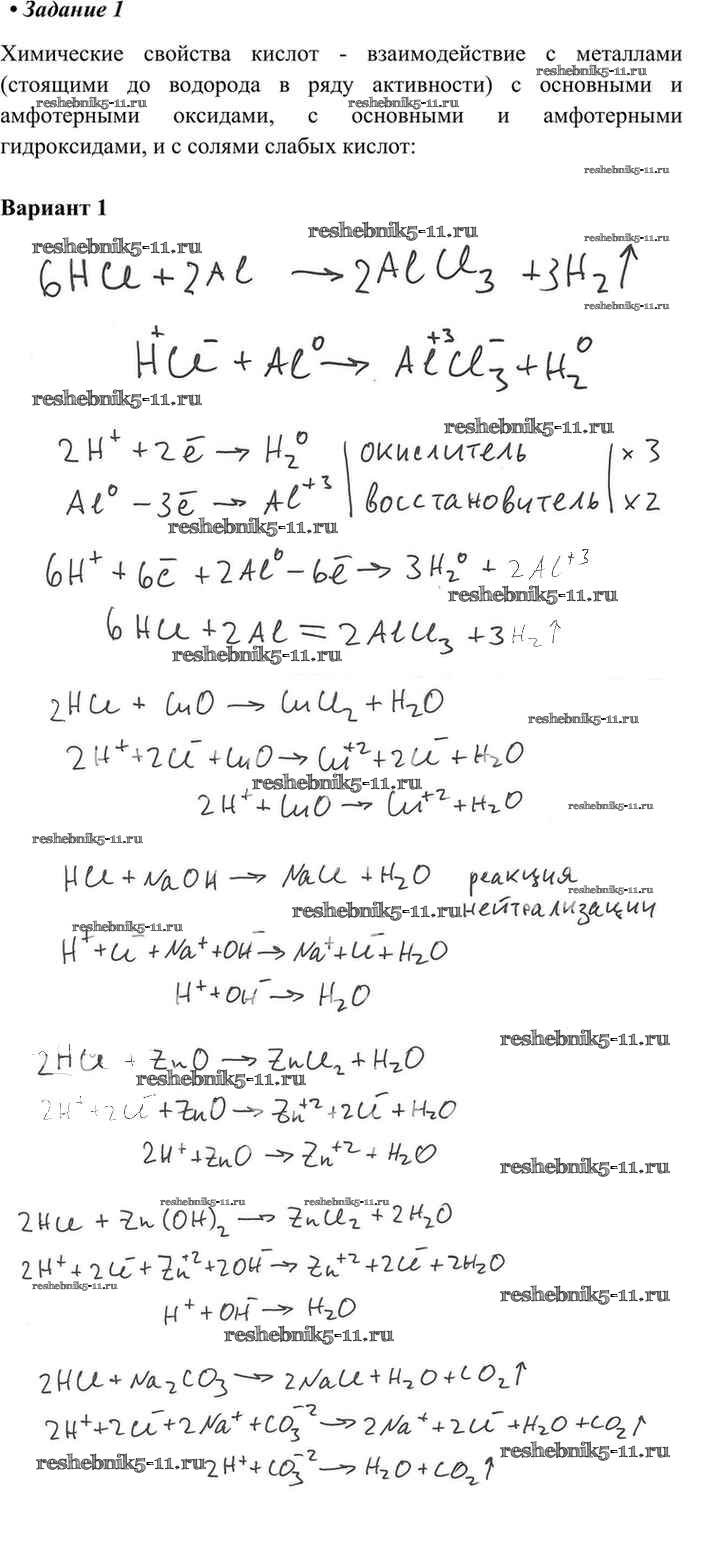 • Задание 1
Химические свойства кислот - взаимодействие с металлами
reshebnik5-11.ru
(стоящими до водорода в ряду активности) с основными и
reshebnik5-11.ru reshebnik5-11.ru
амфотерными оксидами, с основными и амфотерными
гидроксидами, и с солями слабых кислот:
reshebnik5-11.ru
Вариант 1
reshebnik5-11.ru reshebnik5-11.ru reshebnik5-11.ru
6HCl + 2Al → 2AlCl₃ + 3H₂↑
reshebnik5-11.ru
H⁺Cl⁻ + Al⁰ → Al⁺³Cl₃⁻ + H₂⁰
reshebnik5-11.ru
reshebnik5-11.ru
2H⁺ + 2ē → H₂⁰ | окислитель | × 3
Al⁰ − 3ē → Al⁺³ | восстановитель | × 2
reshebnik5-11.ru
6H⁺ + 6ē + 2Al⁰ − 6ē → 3H₂⁰ + 2Al⁺³
reshebnik5-11.ru
6HCl + 2Al = 2AlCl₃ + 3H₂↑
reshebnik5-11.ru
2HCl + CuO → CuCl₂ + H₂O
reshebnik5-11.ru
2H⁺ + 2Cl⁻ + CuO → Cu⁺² + 2Cl⁻ + H₂O
reshebnik5-11.ru
2H⁺ + CuO → Cu⁺² + H₂O
reshebnik5-11.ru
reshebnik5-11.ru
HCl + NaOH → NaCl + H₂O реакция
reshebnik5-11.ru
reshebnik5-11.ru нейтрализации
reshebnik5-11.ru
H⁺ + Cl⁻ + Na⁺ + OH⁻ → Na⁺ + Cl⁻ + H₂O
H⁺ + OH⁻ → H₂O
reshebnik5-11.ru
2HCl + ZnO → ZnCl₂ + H₂O
reshebnik5-11.ru
2H⁺ + 2Cl⁻ + ZnO → Zn⁺² + 2Cl⁻ + H₂O
2H⁺ + ZnO → Zn⁺² + H₂O
reshebnik5-11.ru
reshebnik5-11.ru reshebnik5-11.ru
2HCl + Zn(OH)₂ → ZnCl₂ + 2H₂O
2H⁺ + 2Cl⁻ + Zn⁺² + 2OH⁻ → Zn⁺² + 2Cl⁻ + 2H₂O
reshebnik5-11.ru reshebnik5-11.ru
H⁺ + OH⁻ → H₂O
reshebnik5-11.ru
2HCl + Na₂CO₃ → 2NaCl + H₂O + CO₂↑
2H⁺ + 2Cl⁻ + 2Na⁺ + CO₃⁻² → 2Na⁺ + 2Cl⁻ + H₂O + CO₂↑
reshebnik5-11.ru reshebnik5-11.ru
2H⁺ + CO₃⁻² → H₂O + CO₂↑